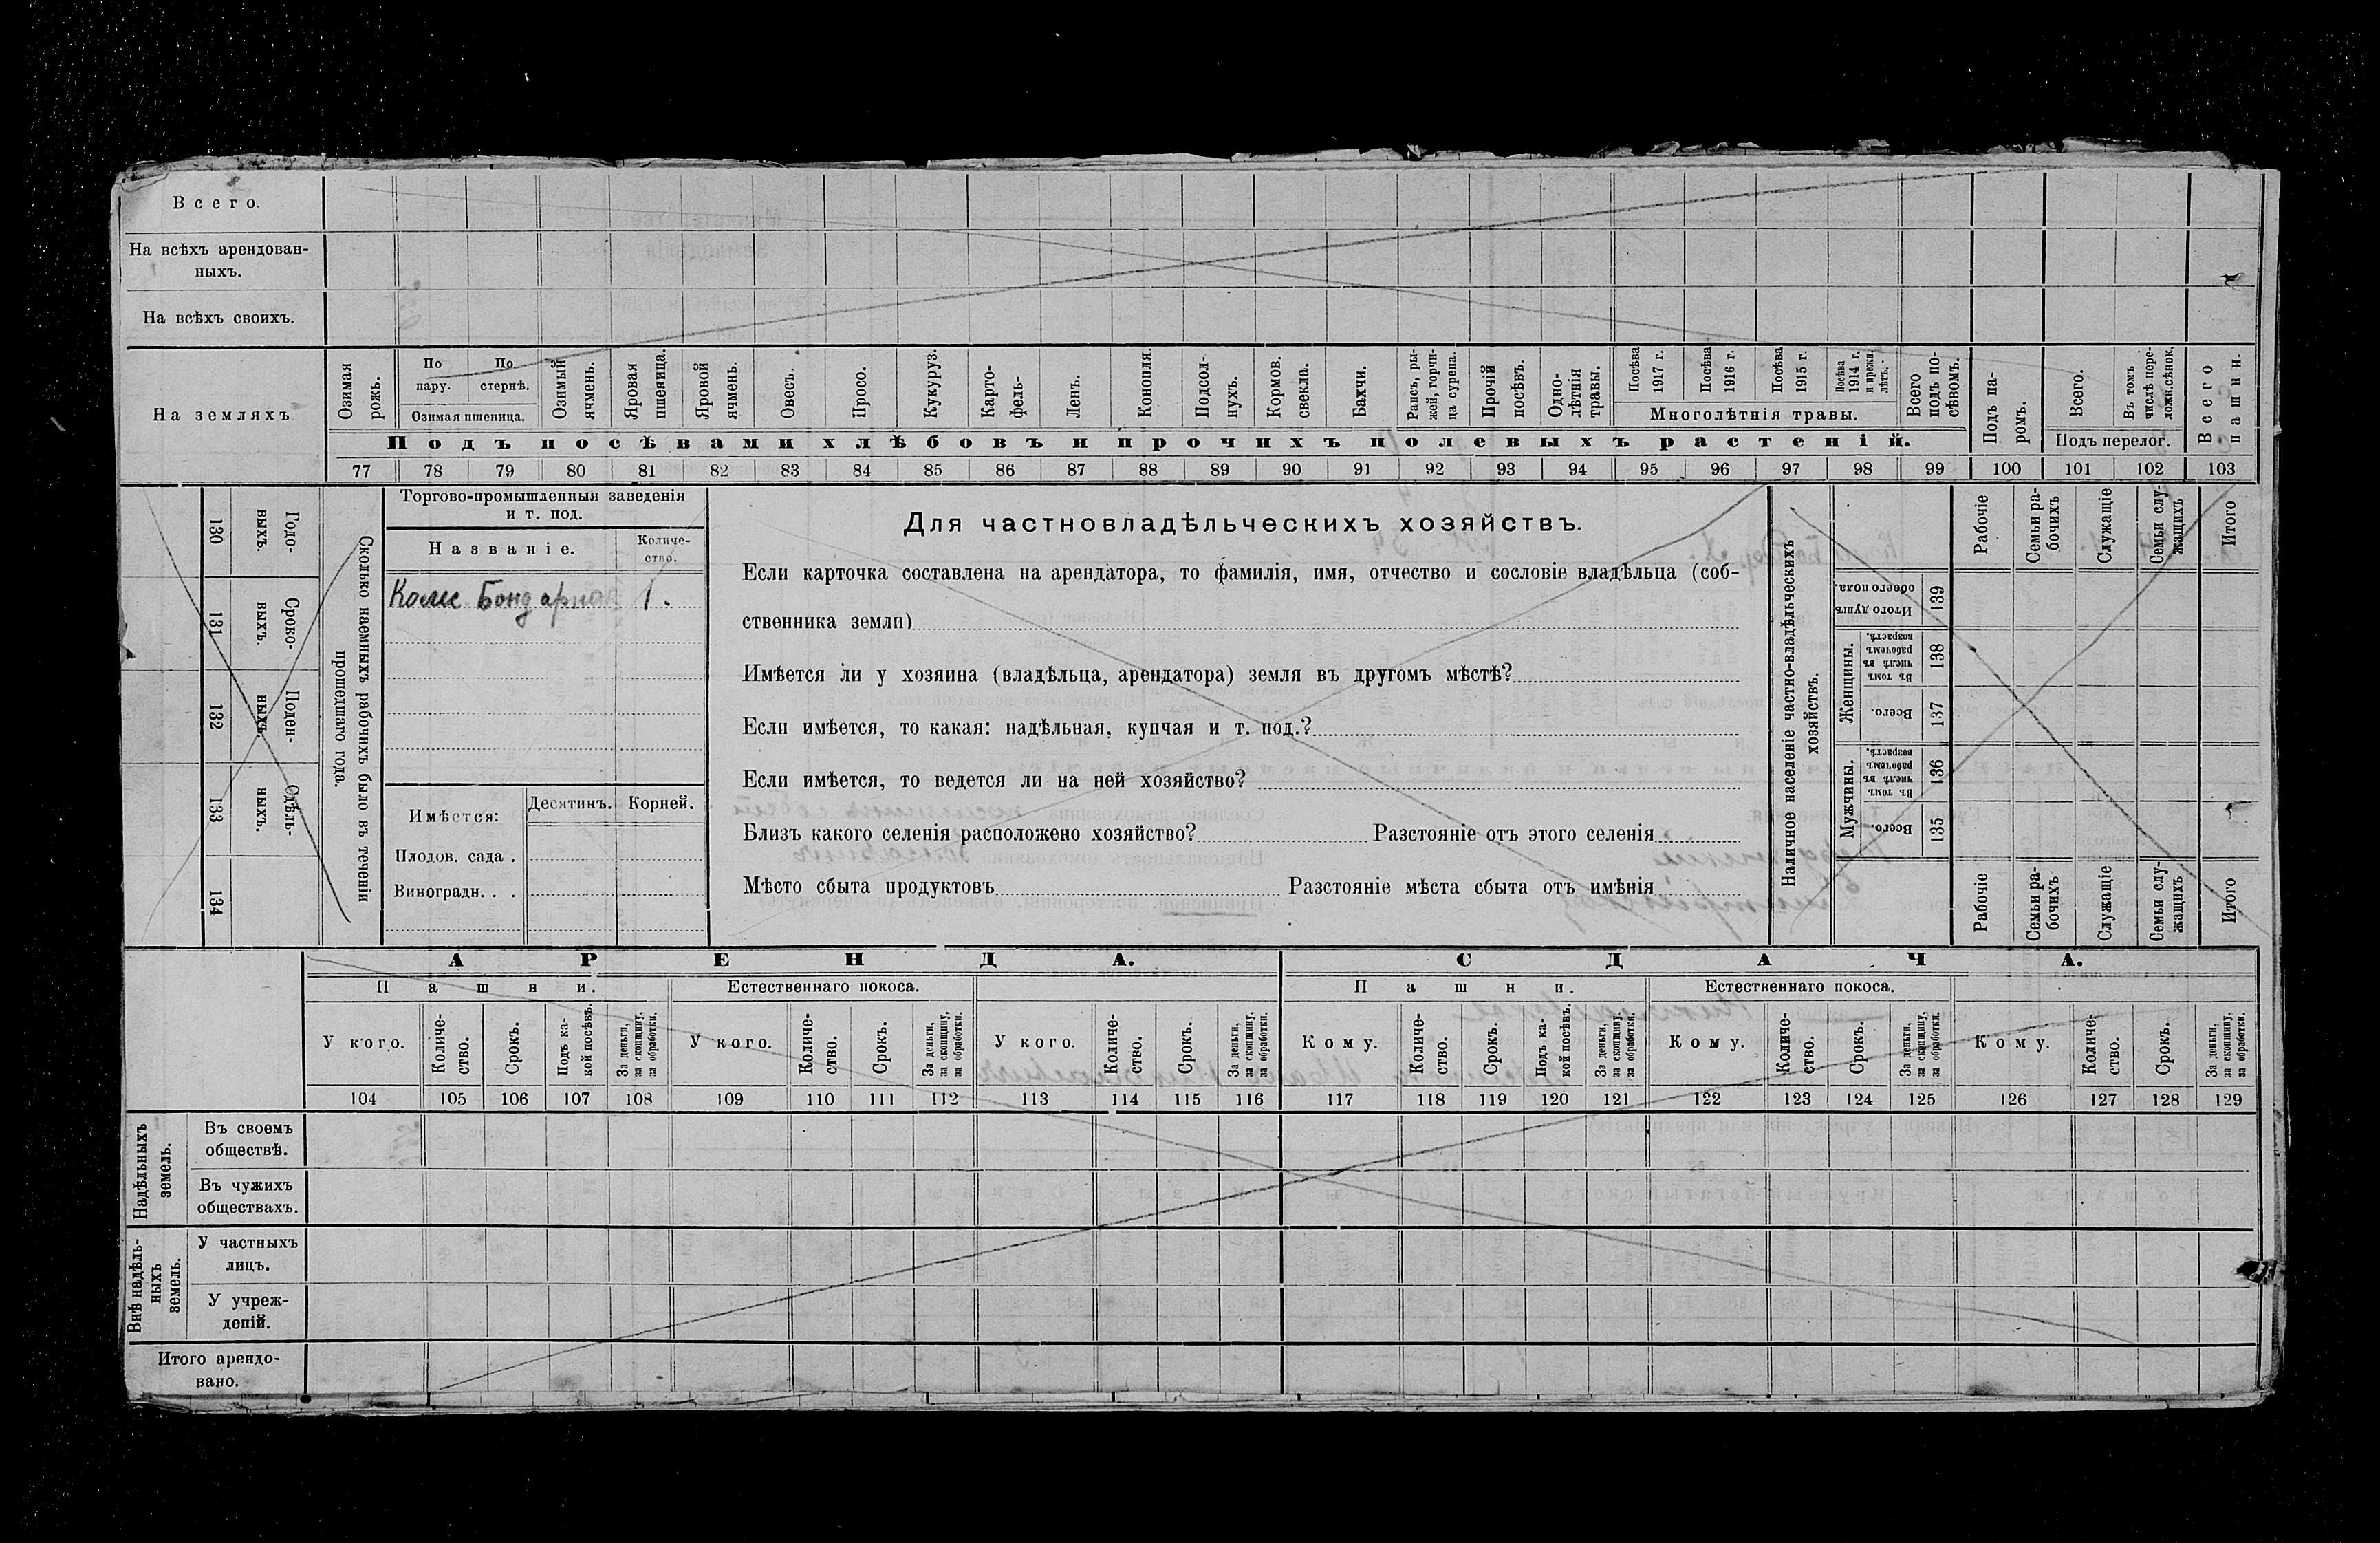 Всего.
На всѣхъ арендован-
ныхъ.
На всѣхъ своихъ.
На земляхъ
Озимая рожь.
По пару.
По стернѣ.
Озимая пшеница.
Озимый ячмень.
Яровая пшеница.
Яровой ячмень.
Овесъ.
Просо.
Кукуруз.
Карто-
фель-
Ленъ.
Конопля.
Подсол-
нухъ.
Кормов.
свекла.
Бахчи.
Рапсъ, ры-
жей, горчи-
ца сурепа.
Прочій
посѣвъ.
Одно-
лѣтнія
травы.
Посѣва 1917 г.
Посѣва 1916 г.
Посѣва 1915 г.
Посѣва 1914 г. и прежн. лѣтъ.
Многолѣтнія травы.
Всего
подъ по-
сѣвомъ.
Подъ па-
ромъ.
Всего.
Въ томъ
числѣ пере-
ложн.сѣнок.
Подъ перелог.
Всего
пашни.
Подъ посѣвами хлѣбовъ и прочихъ полевыхъ растеній.
77 78 79 80 81 82 83 84 85 86 87 88 89 90 91 92 93 94 95 96 97 98 99 100 101 102 103
130
Годо-
выхъ.
131
Сроко-
выхъ.
132
Поден-
ныхъ.
133
Сдѣль-
ныхъ.
134
Сколько наемныхъ рабочихъ было въ теченіи
прошедшаго года.
Торгово-промышленныя заведенія
и т. под.
Названіе.
Количе-
ство.
Колес Бондарная 1.
Имѣется:
Десятинъ.
Корней.
Плодов. сада .
Виноградн. . .
Для частновладѣльческихъ хозяйствъ.
Если карточка составлена на арендатора, то фамилія, имя, отчество и сословіе владѣльца (соб-
ственника земли)
Имѣется ли у хозяина (владѣльца, арендатора) земля въ другомъ мѣстѣ?
Если имѣется, то какая: надѣльная, купчая и т. под.?
Если имѣется, то ведется ли на ней хозяйство?
Близъ какого селенія расположено хозяйство? Разстояніе отъ этого селенія
Мѣсто сбыта продуктовъ Разстояніе мѣста сбыта отъ имѣнія
Наличное населеніе частно-владѣльческихъ
хозяйствъ.
Рабочіе
Семьи ра-
бочихъ
Служащіе
Семьи слу-
жащихъ
Итого
Итого душъ
обоего пола.
139
Женщины.
Въ томъ
числѣ въ
рабочемъ
возрастѣ.
138
Всего.
137
Мужчины.
Въ томъ
числѣ въ
рабочемъ
возрастѣ.
136
Всего.
135
Рабочіе
Семьи ра-
бочихъ
Служащіе
Семьи слу-
жащихъ
Итого
АРЕНДА.
СДАЧА.
Пашни.
Естественнаго покоса.
Пашни.
Естественнаго покоса.
У кого.
Количе-
ство.
Срокъ.
Подъ ка-
кой посѣвъ.
За деньги,
за скопщину,
за обработки.
У кого.
Количе-
ство.
Срокъ.
За деньги,
за скопщину,
за обработки.
У кого.
Количе-
ство.
Срокъ.
За деньги,
за скопщину,
за обработки.
Кому.
Количе-
ство.
Срокъ.
Подъ ка-
кой посѣвъ.
За деньги,
за скопщину,
за обработки.
Кому.
Количе-
ство.
Срокъ.
За деньги,
за скопщину,
за обработки.
Кому.
Количе-
ство.
Срокъ.
За деньги,
за скопщину,
за обработки.
104 105 106 107 108 109 110 111 112 113 114 115 116 117 118 119 120 121 122 123 124 125 126 127 128 129
Надѣльныхъ
земель.
Въ своемъ
обществѣ.
Въ чужихъ
обществахъ.
Внѣ надѣль-
ныхъ
земель.
У частныхъ
лицъ.
У учреж-
деній.
Итого арендо-
вано.